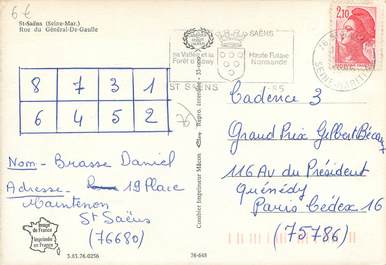 6 €
St-Saëns (Seine-Mar.)
Rue du Général-De-Gaulle
SAËNS
Sa Vallée et la
Forêt d'
Haute Futaie
Normande
ST SAËNS
2,10
8 7 3 1
6 4 5 2
76
Cadence 3
Grand Prix Gilbert Bécaud
116 Av du Président
Quénédy
Paris Cédex 16
(75786)
Nom - Brasse Daniel
Adresse - 19 Place
Maintenon
St Saëns
(76680)
Combier Imprimeur Mâcon
Repro. interdite
Image de France
Imprimée en France
3.85.76.0256
76-648